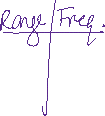 Range Freq.